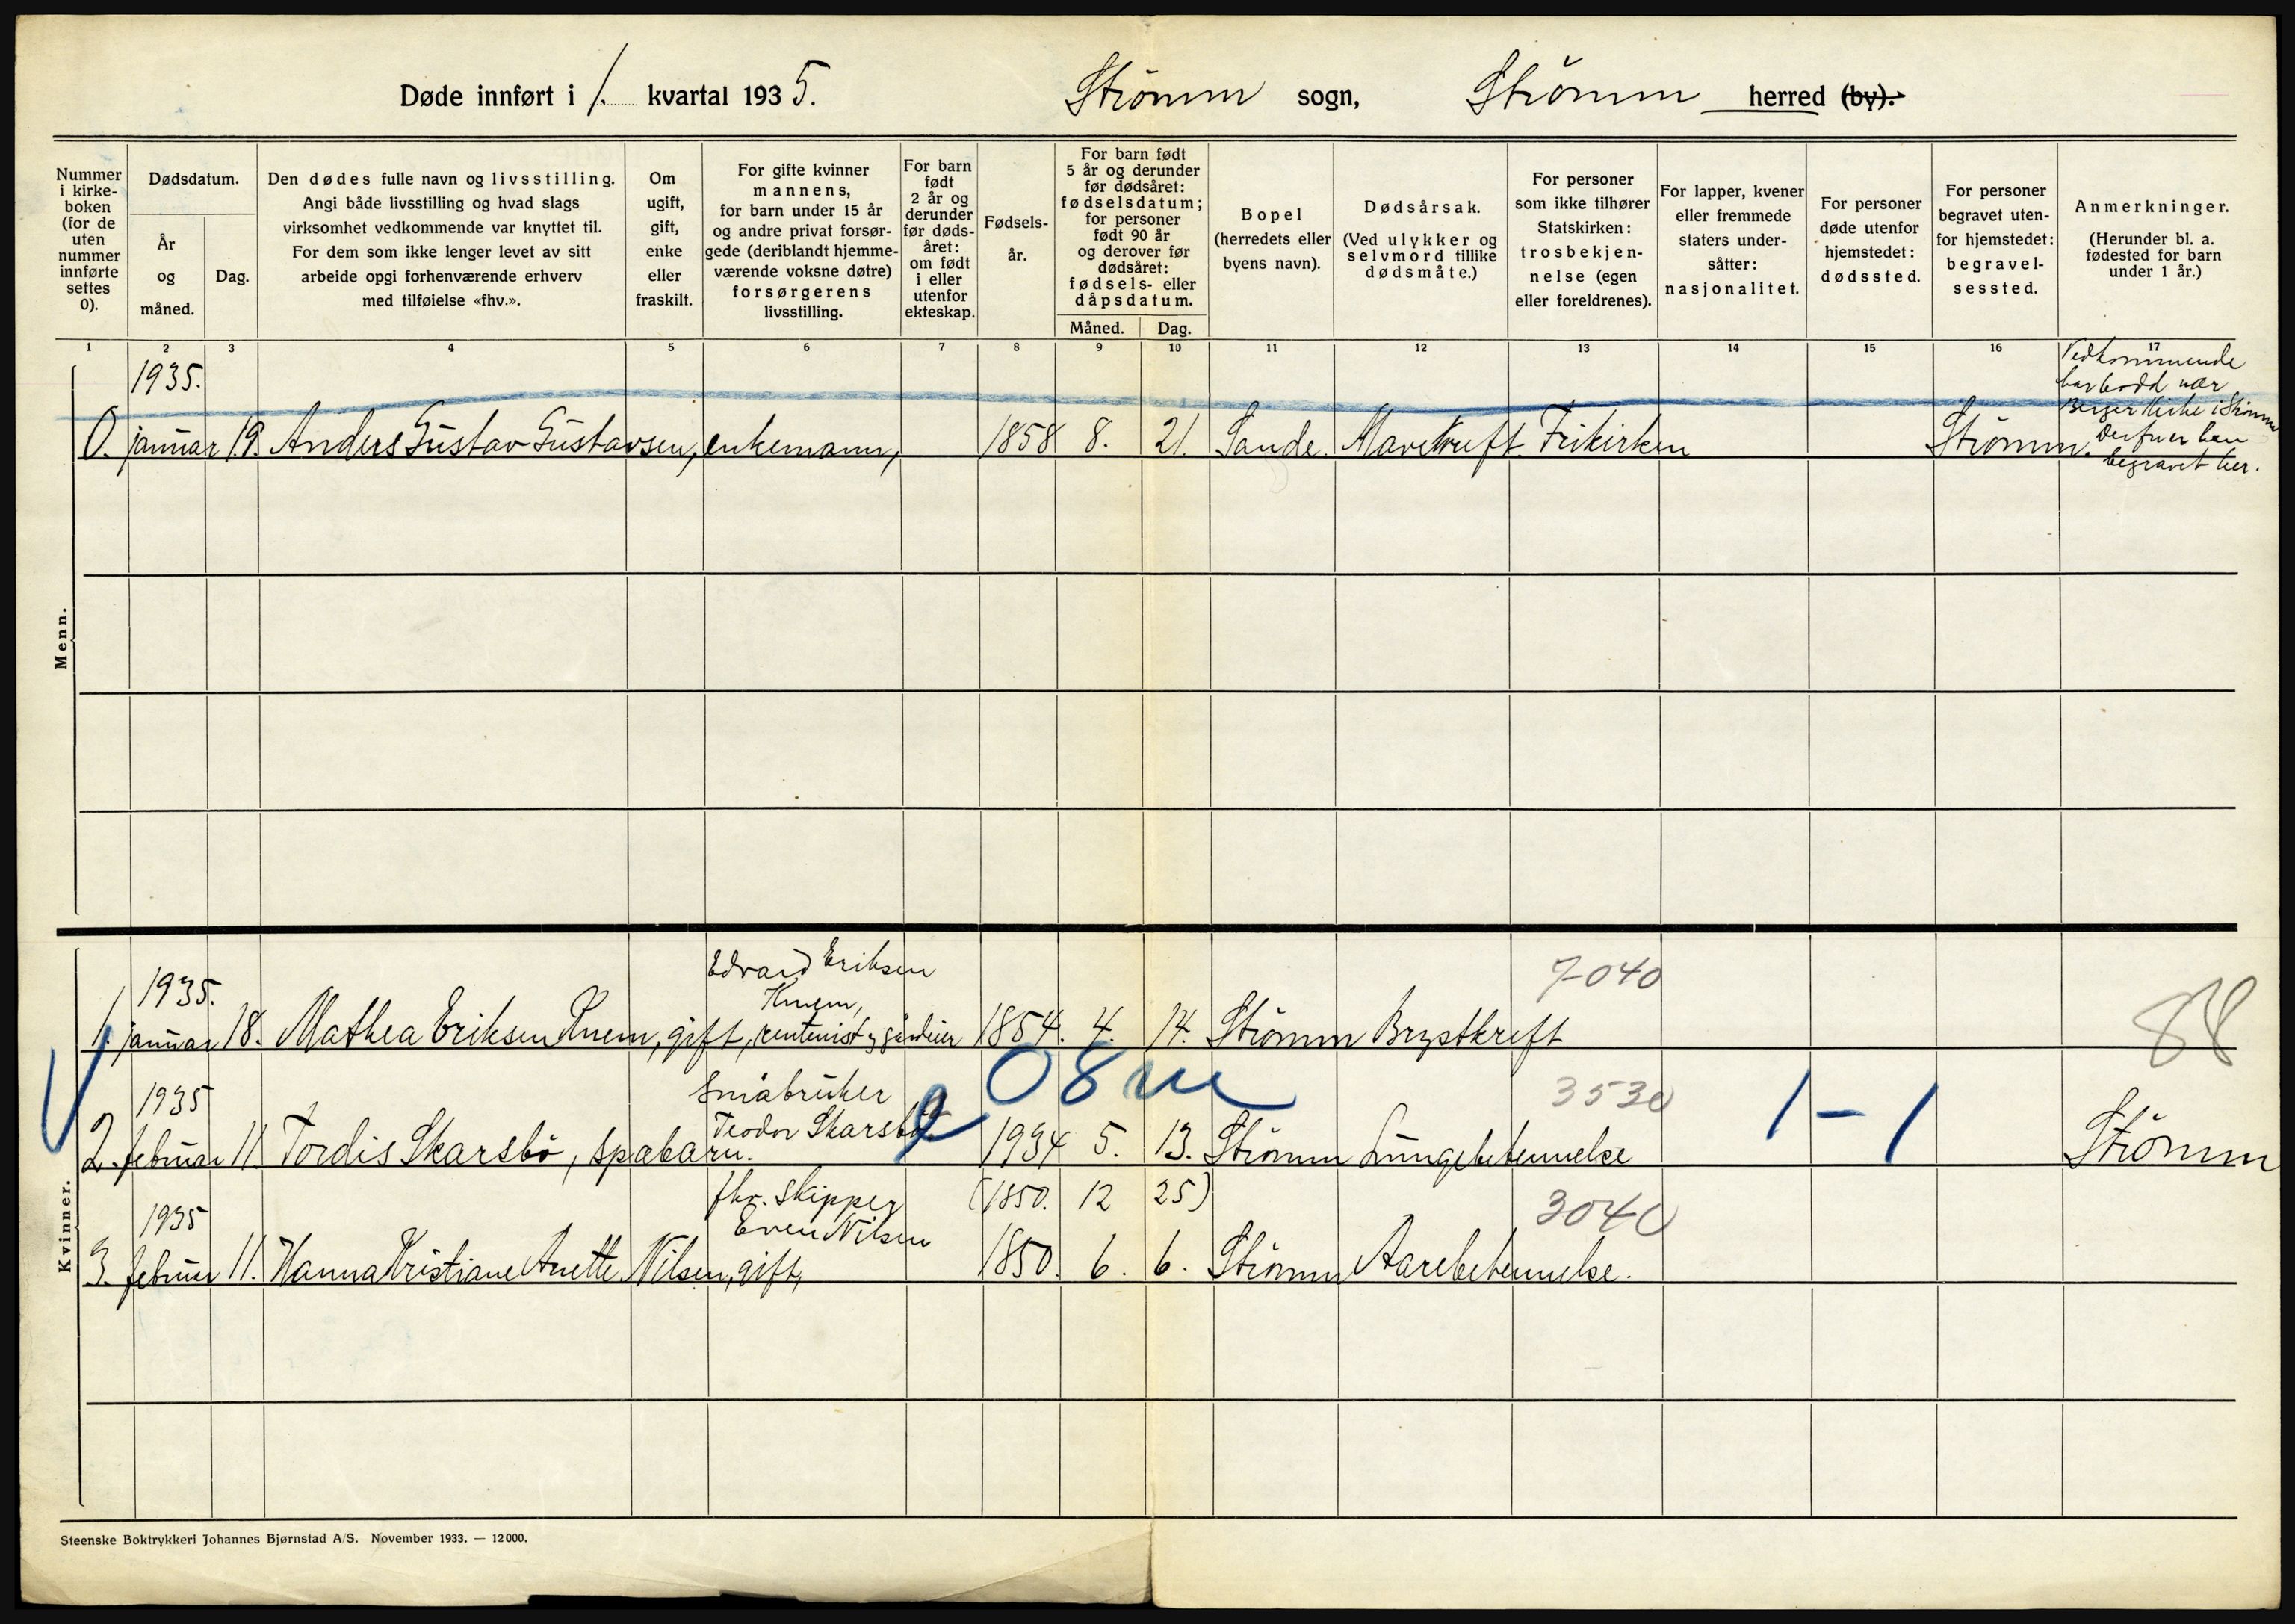 Døde innført i 1. kvartal 1935. Strömm sogn, Strömm herred (by).
Nummer i kirke-boken (for de uten nummer innførte settes 0).
Dødsdatum.
År og måned.
Dag.
Den dødes fulle navn og livsstilling.
Angi både livsstilling og hvad slags
virksomhet vedkommende var knyttet til.
For dem som ikke lenger levet av sitt
arbeide opgi forhenværende erhverv
med tilføielse «fhv.».
Om
ugift,
gift,
enke
eller
fraskilt.
For gifte kvinner
mannens,
for barn under 15 år
og andre privat forsør-
gede (deriblandt hjemme-
værende voksne døtre)
forsørgerens
livsstilling.
For barn
født
2 år og
derunder
før døds-
året:
om født
i eller
utenfor
ekteskap.
Fødsels-
år.
For barn født
5 år og derunder
før dødsåret:
fødselsdatum;
for personer
født 90 år
og derover før
dødsåret:
fødsels- eller
dåpsdatum.
Måned. Dag.
Bopel
(herredets eller
byens navn).
Dødsårsak.
(Ved ulykker og
selvmord tillike
dødsmåte.)
For personer
som ikke tilhører
Statskirken:
trosbekjen-
nelse (egen
eller foreldrenes).
For lapper, kvener
eller fremmede
staters under-
såtter:
nasjonalitet.
For personer
døde utenfor
hjemstedet:
dødssted.
For personer
begravet uten-
for hjemstedet:
begravel-
sessted.
Anmerkninger.
(Herunder bl. a.
fødested for barn
under 1 år.)
1 2 3 4 5 6 7 8 9 10 11 12 13 14 15 16 17
Menn.
1935.
Vedkommende
har bodd nær
Berger Kirke i Strömm
Derfor er han
begravet her.
0. januar 19. Anders Gustav Gustavsen, enkemann, 1858 8. 21. Sande. Mavekreft. Frikirken Strömm.
Kvinner.
Edvard Eriksen
1935. Knem, 7040
1. januar 18. Mathea Eriksen Knem, gift, rentenist og gårdeier 1854. 4. 14. Strömm Brystkreft 88
08
1935 Småbruker 3530 1 - 1
Teodor Skarsbö.
2. februar 11. Tordis Skarsbö, spebarn. 1934 5. 13. Strömm Lungebetennelse Strömm
fhv. skipper (1850. 12 25)
1935 Even Nilsen 3040
3. februar 11. Hanna Kristiane Anette Nilsen, gift, 1850. 6. 6. Strömm Aarebetennelse.
Steenske Boktrykkeri Johannes Bjørnstad A/S. November 1933. — 12000.